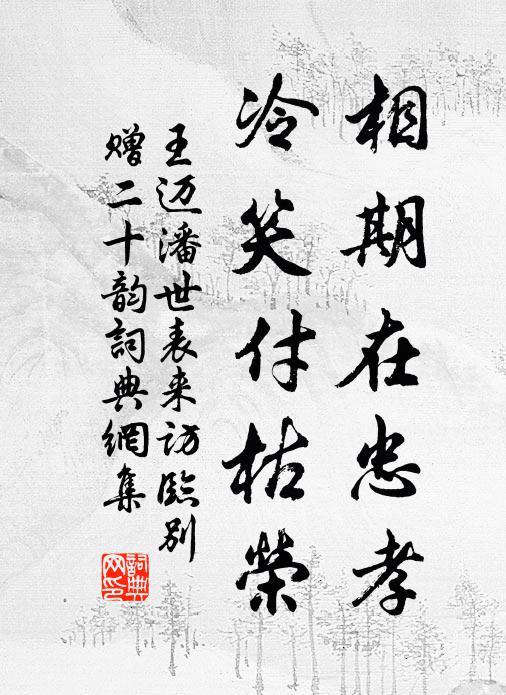 相期在忠孝
冷笑付枯榮
王迈潘世表来访臨别
赠二十韵詞典網集
詞典网印